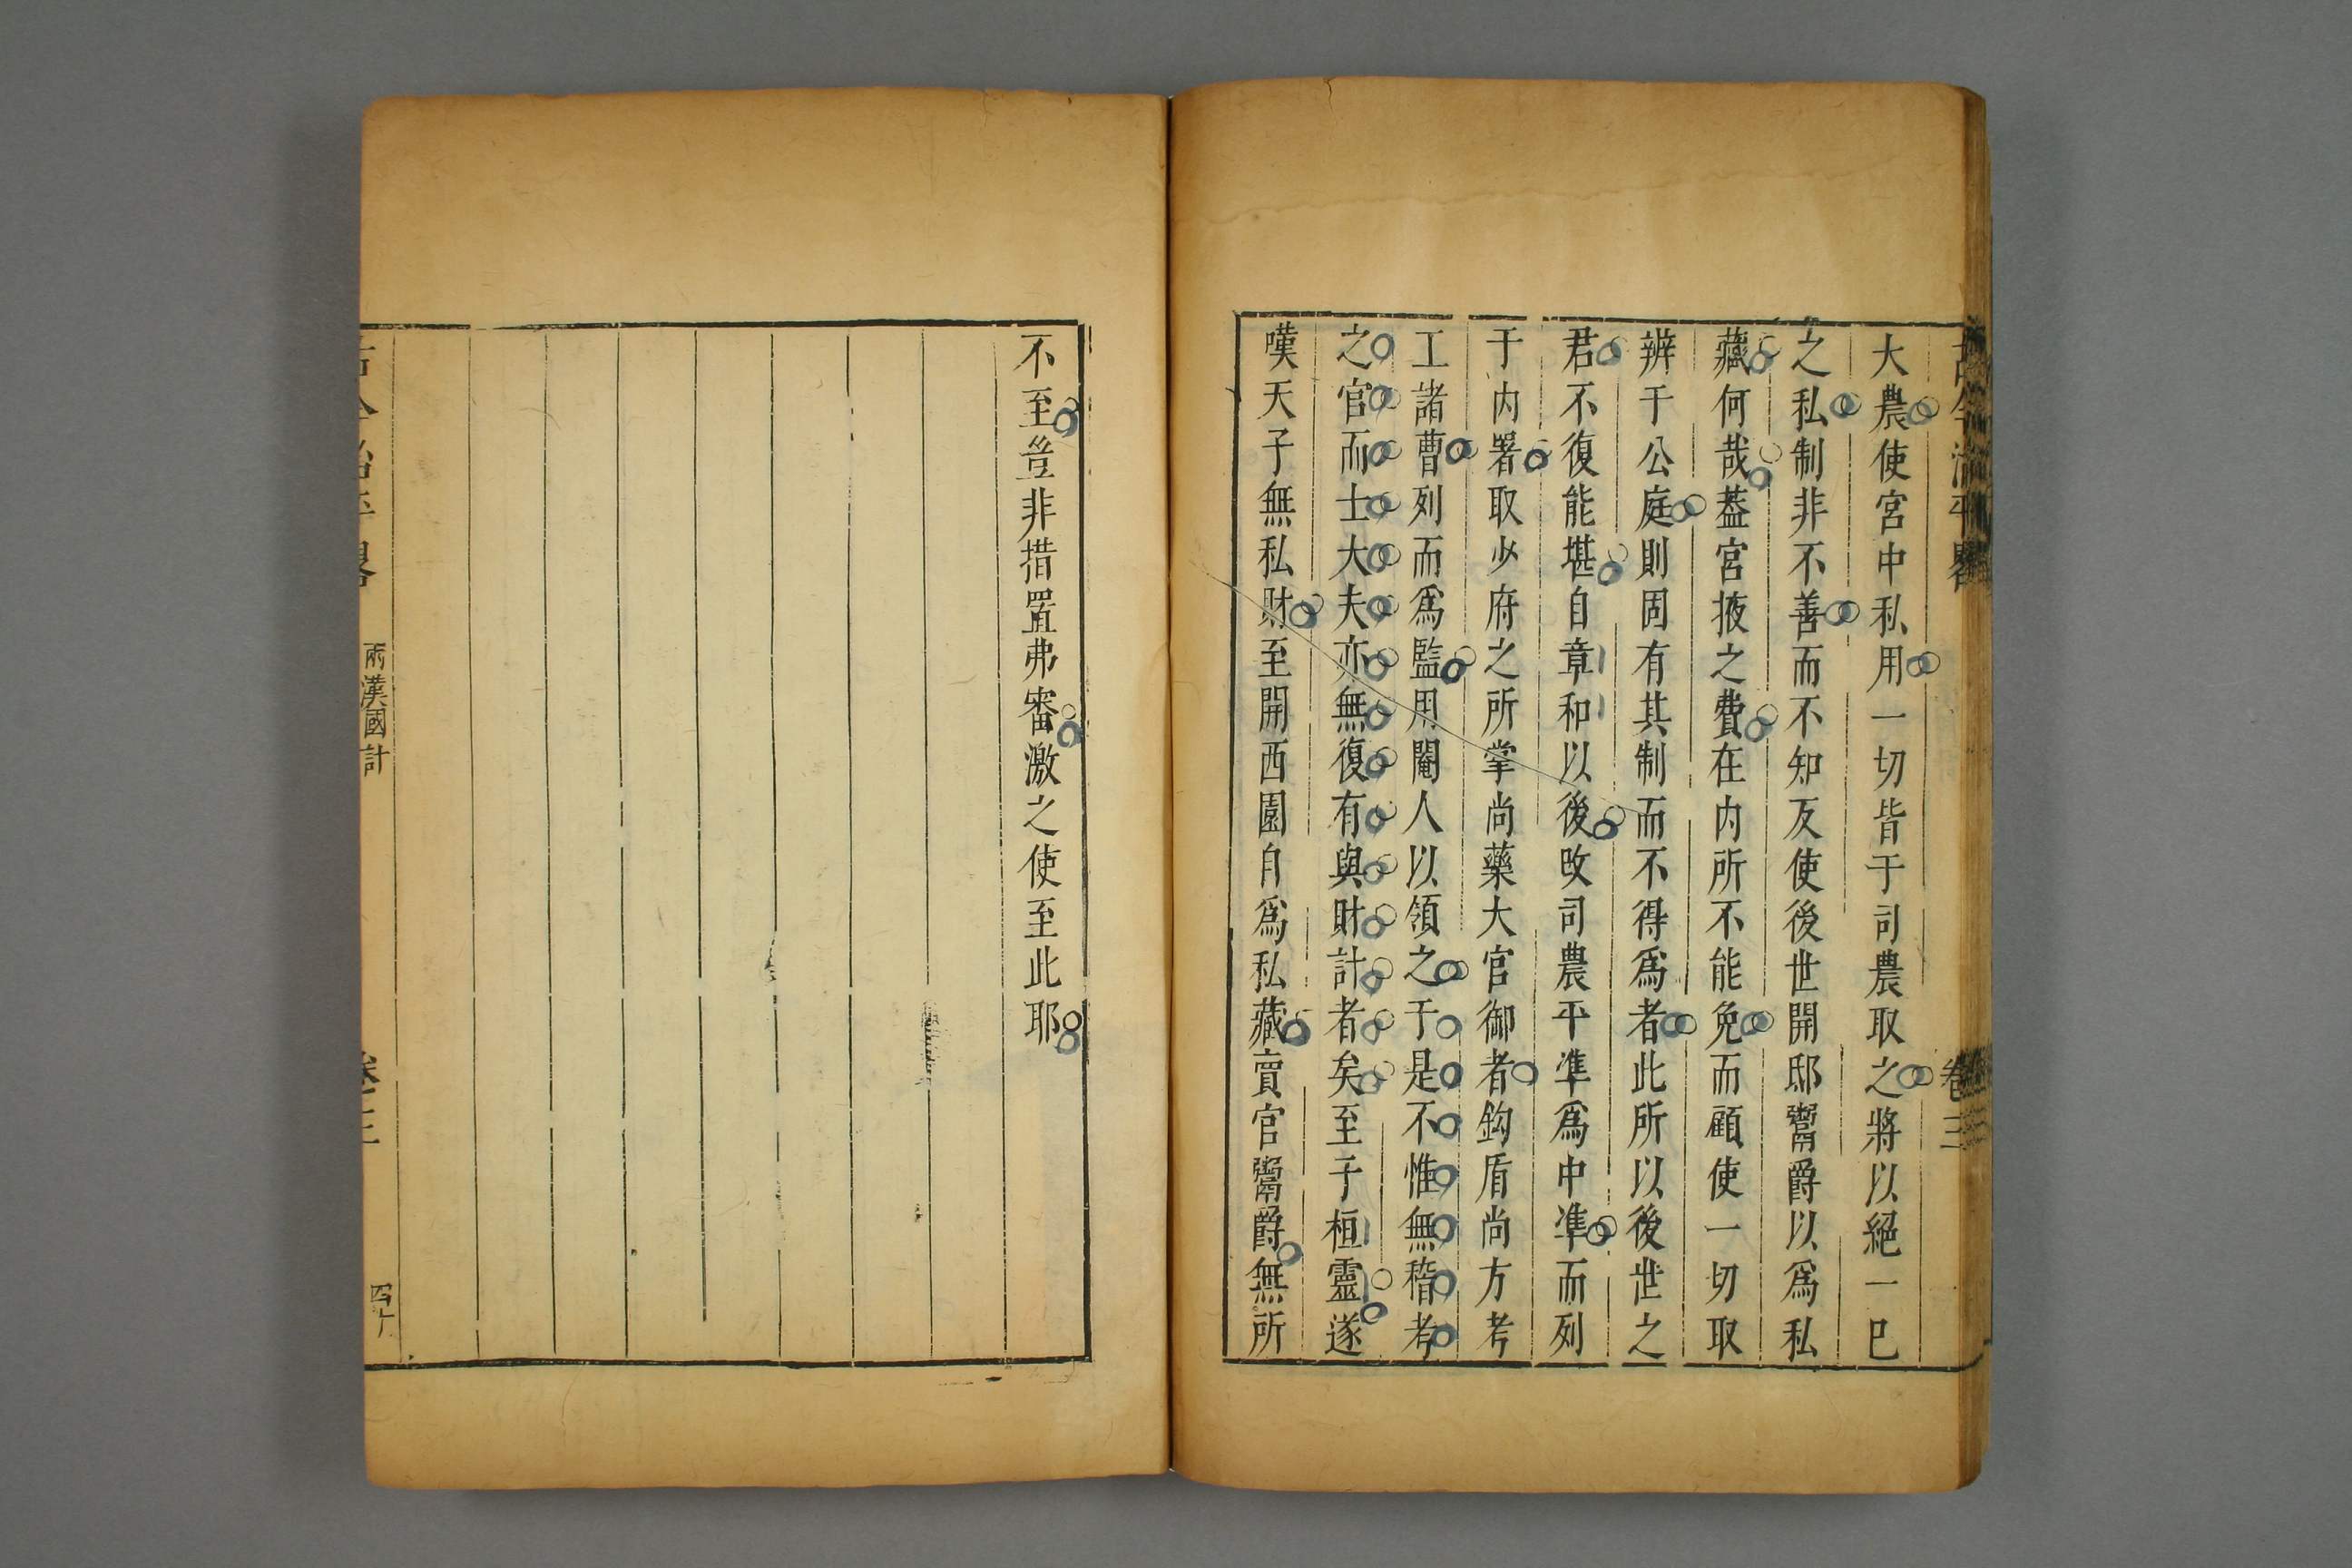 古今治平畧
卷三
大農使宮中私用一切皆于司農取之將以絕一己
之私制非不善而不知反使後世開邸鬻爵以爲私
藏何哉葢宮掖之費在内所不能免而顧使一切取
辨于公庭則固有其制而不得爲者此所以後世之
君不復能堪自章和以後改司農平凖爲中凖而列
于内署取少府之所掌尚藥大官御者鈎盾尚方考
工諸曹列而爲監用閹人以領之于是不惟無稽考
之官而士大夫亦無復有與財計者矣至于桓靈遂
嘆天子無私財至開西園自爲私藏賣官鬻爵無所
不至豈非措置弗審激之使至此耶
古今治平畧
兩漢國計
卷三